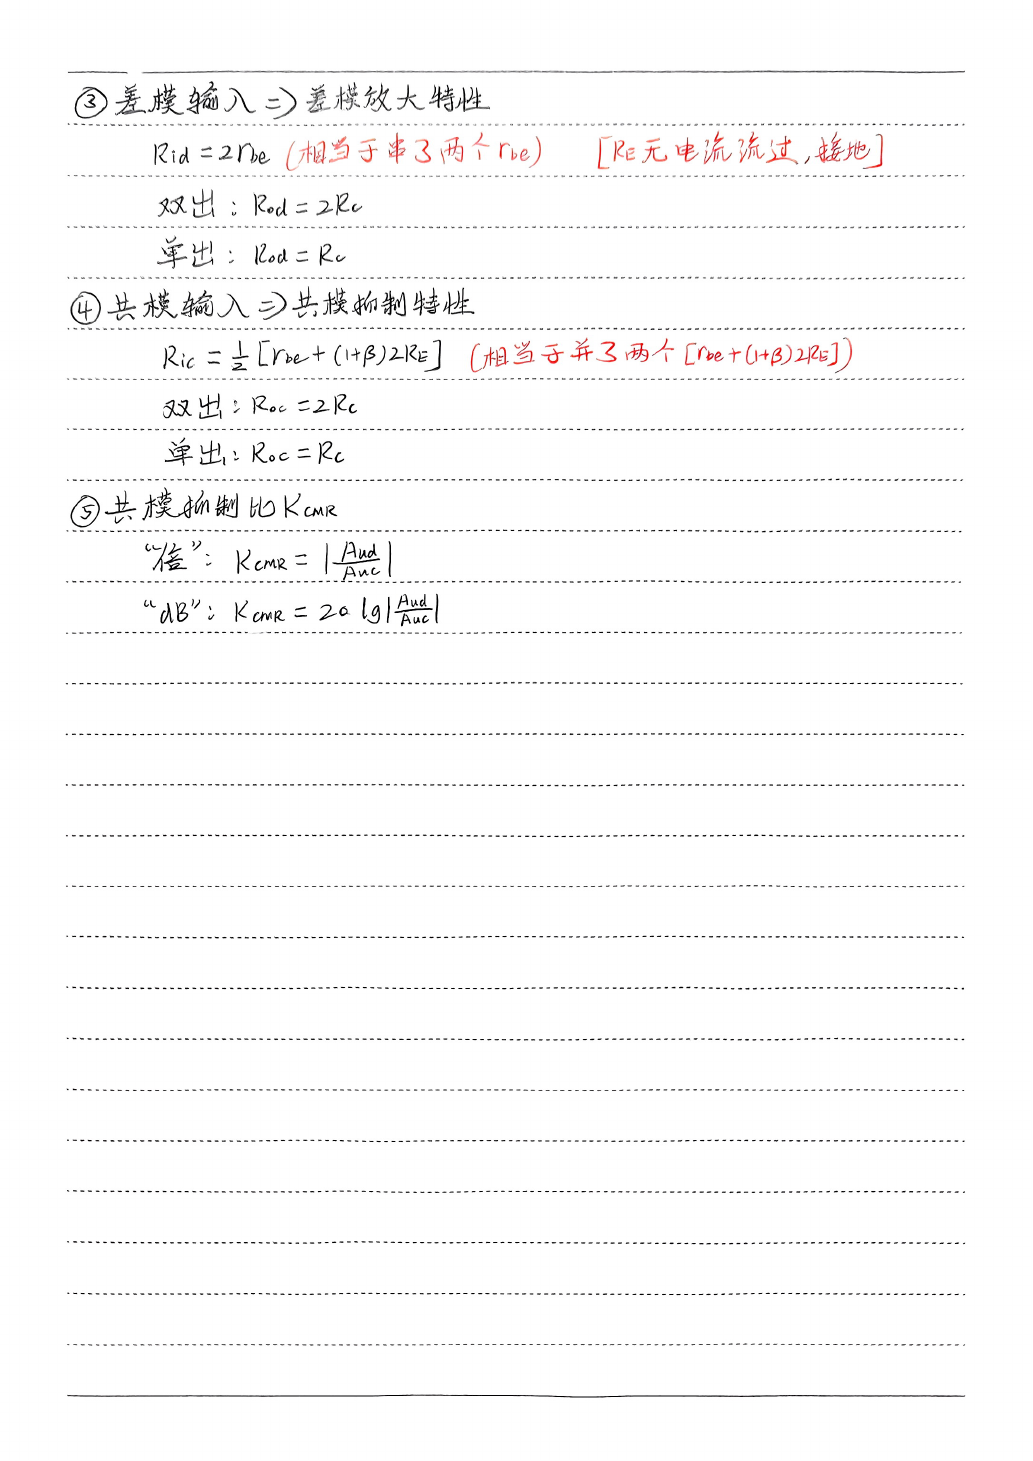 ③差模输入=>差模放大特性
Rid=2rbe (相当于串了两个rbe) [RE无电流流过,接地]
双出:Rod=2Rc
单出:Rod=Rc
④共模输入=>共模抑制特性
Ric=1/2[rbe+(1+β)2RE] (相当于并了两个[rbe+(1+β)2RE])
双出:Roc=2Rc
单出:Roc=Rc
⑤共模抑制比KCMR
“倍”:KCMR=|Aud/Auc|
“dB”:KCMR=20 lg|Aud/Auc|